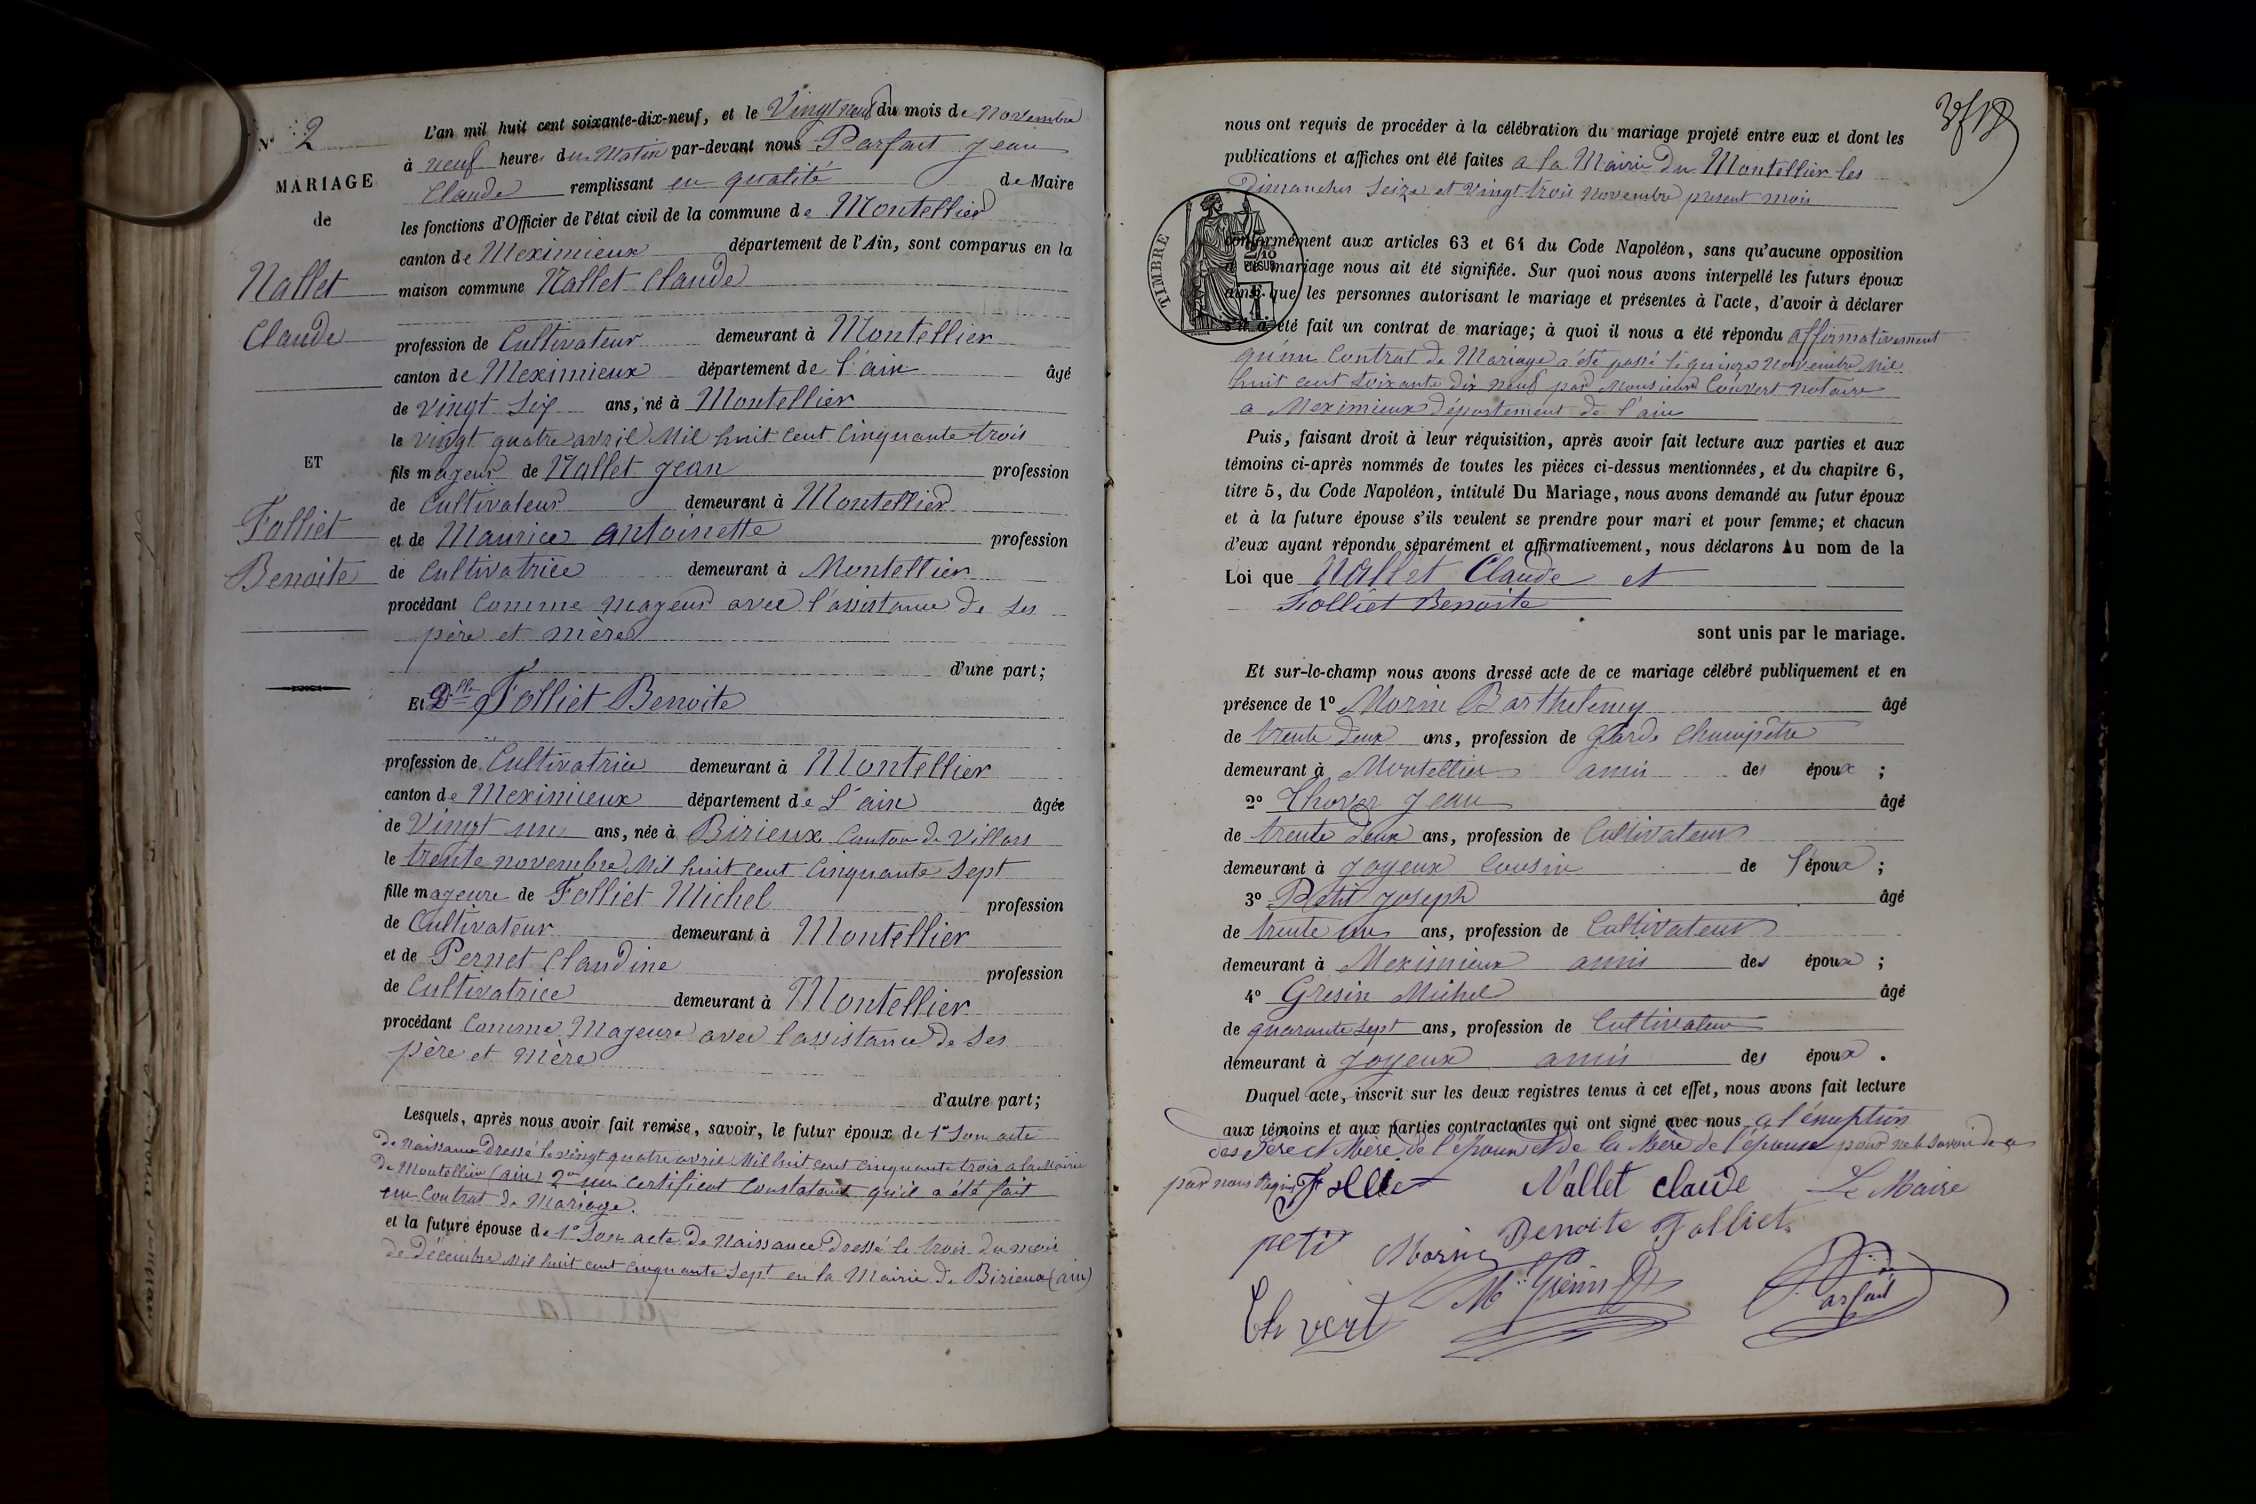 N° 2
MARIAGE
de
Nallet
Claude
ET
Folliet
Benoite
L'an mil huit cent soixante-dix-neuf, et le Vingt neuf du mois de Novembre
à neuf heures du Matin par-devant nous Parfait Jean
Claude remplissant en qualité de Maire
les fonctions d'Officier de l'état civil de la commune de Montellier
canton de Meximieux département de l'Ain, sont comparus en la
maison commune Nallet Claude
profession de Cultivateur demeurant à Montellier
canton de Meximieux département de l'ain âgé
de vingt six ans, né à Montellier
le vingt quatre avril Mil huit cent Cinquante trois
fils mageur de Nallet Jean profession
de Cultivateur demeurant à Montellier
et de Maurice Antoinette profession
de Cultivatrice demeurant à Montellier
procédant Comme mageur avec l'assistance de ses
père et mère
d'une part;
Et Dlle Folliet Benoite
profession de Cultivatrice demeurant à Montellier
canton de Meximieux département de L'ain âgée
de Vingt un ans, née à Birieux Canton de Villars
le trente novembre Mil huit cent Cinquante sept
fille mageure de Folliet Michel profession
de Cultivateur demeurant à Montellier
et de Pernet Claudine profession
de Cultivatrice demeurant à Montellier
procédant Comme Mageure avec l'assistance de ses
père et Mère
d'autre part;
Lesquels, après nous avoir fait remise, savoir, le futur époux de 1° Son acte
de Naissance Dressé le vingt quatre avril Mil huit cent cinquante trois a la Mairie
de Montellier (ain) 2° un certificat Constatant qu'il a été fait
un Contrat de Mariage.
et la future épouse de 1° Son acte De Naissance Dressé le trois du mois
de Décembre Mil huit cent cinquante sept en la Mairie de Birieux (ain)
nous ont requis de procéder à la célébration du mariage projeté entre eux et dont les
publications et affiches ont été faites a la Mairie du Montellier les
Dimanches Seize et vingt trois Novembre present mois
TIMBRE
2/10
EN SUS
conformément aux articles 63 et 64 du Code Napoléon, sans qu'aucune opposition
à ce mariage nous ait été signifiée. Sur quoi nous avons interpellé les futurs époux
ainsi que les personnes autorisant le mariage et présentes à l'acte, d'avoir à déclarer
s'il a été fait un contrat de mariage; à quoi il nous a été répondu affirmativement
qu'un Contrat de Mariage a été passé le quinze Novembre Mil
huit cent soixante dix neuf par Monsieur Couvert Notaire
a Meximieux département de l'ain
Puis, faisant droit à leur réquisition, après avoir fait lecture aux parties et aux
témoins ci-après nommés de toutes les pièces ci-dessus mentionnées, et du chapitre 6,
titre 5, du Code Napoléon, intitulé Du Mariage, nous avons demandé au futur époux
et à la future épouse s'ils veulent se prendre pour mari et pour femme; et chacun
d'eux ayant répondu séparément et affirmativement, nous déclarons Au nom de la
Loi que Nallet Claude et
Folliet Benoite
sont unis par le mariage.
Et sur-le-champ nous avons dressé acte de ce mariage célébré publiquement et en
présence de 1° Morin Barthelemy âgé
de trente deux ans, profession de Garde Champêtre
demeurant à Montellier amis des époux ;
2° Jean âgé
de trente deux ans, profession de Cultivateur
demeurant à Joyeux Cousin de l'époux ;
3° Petit Joseph âgé
de trente ans, profession de Cultivateur
demeurant à Meximieux amis des époux ;
4° Michel âgé
de quarante sept ans, profession de Cultivateur
demeurant à Joyeux amis des époux .
Duquel acte, inscrit sur les deux registres tenus à cet effet, nous avons fait lecture
aux témoins et aux parties contractantes qui ont signé avec nous a l'éxception
des Père et Mère de l'époux et de la Mère de l'épouse pour ne le savoir de ce
par nous Requis Folliet Nallet claude Le Maire
petit Morin Benoite Folliet
Parfait